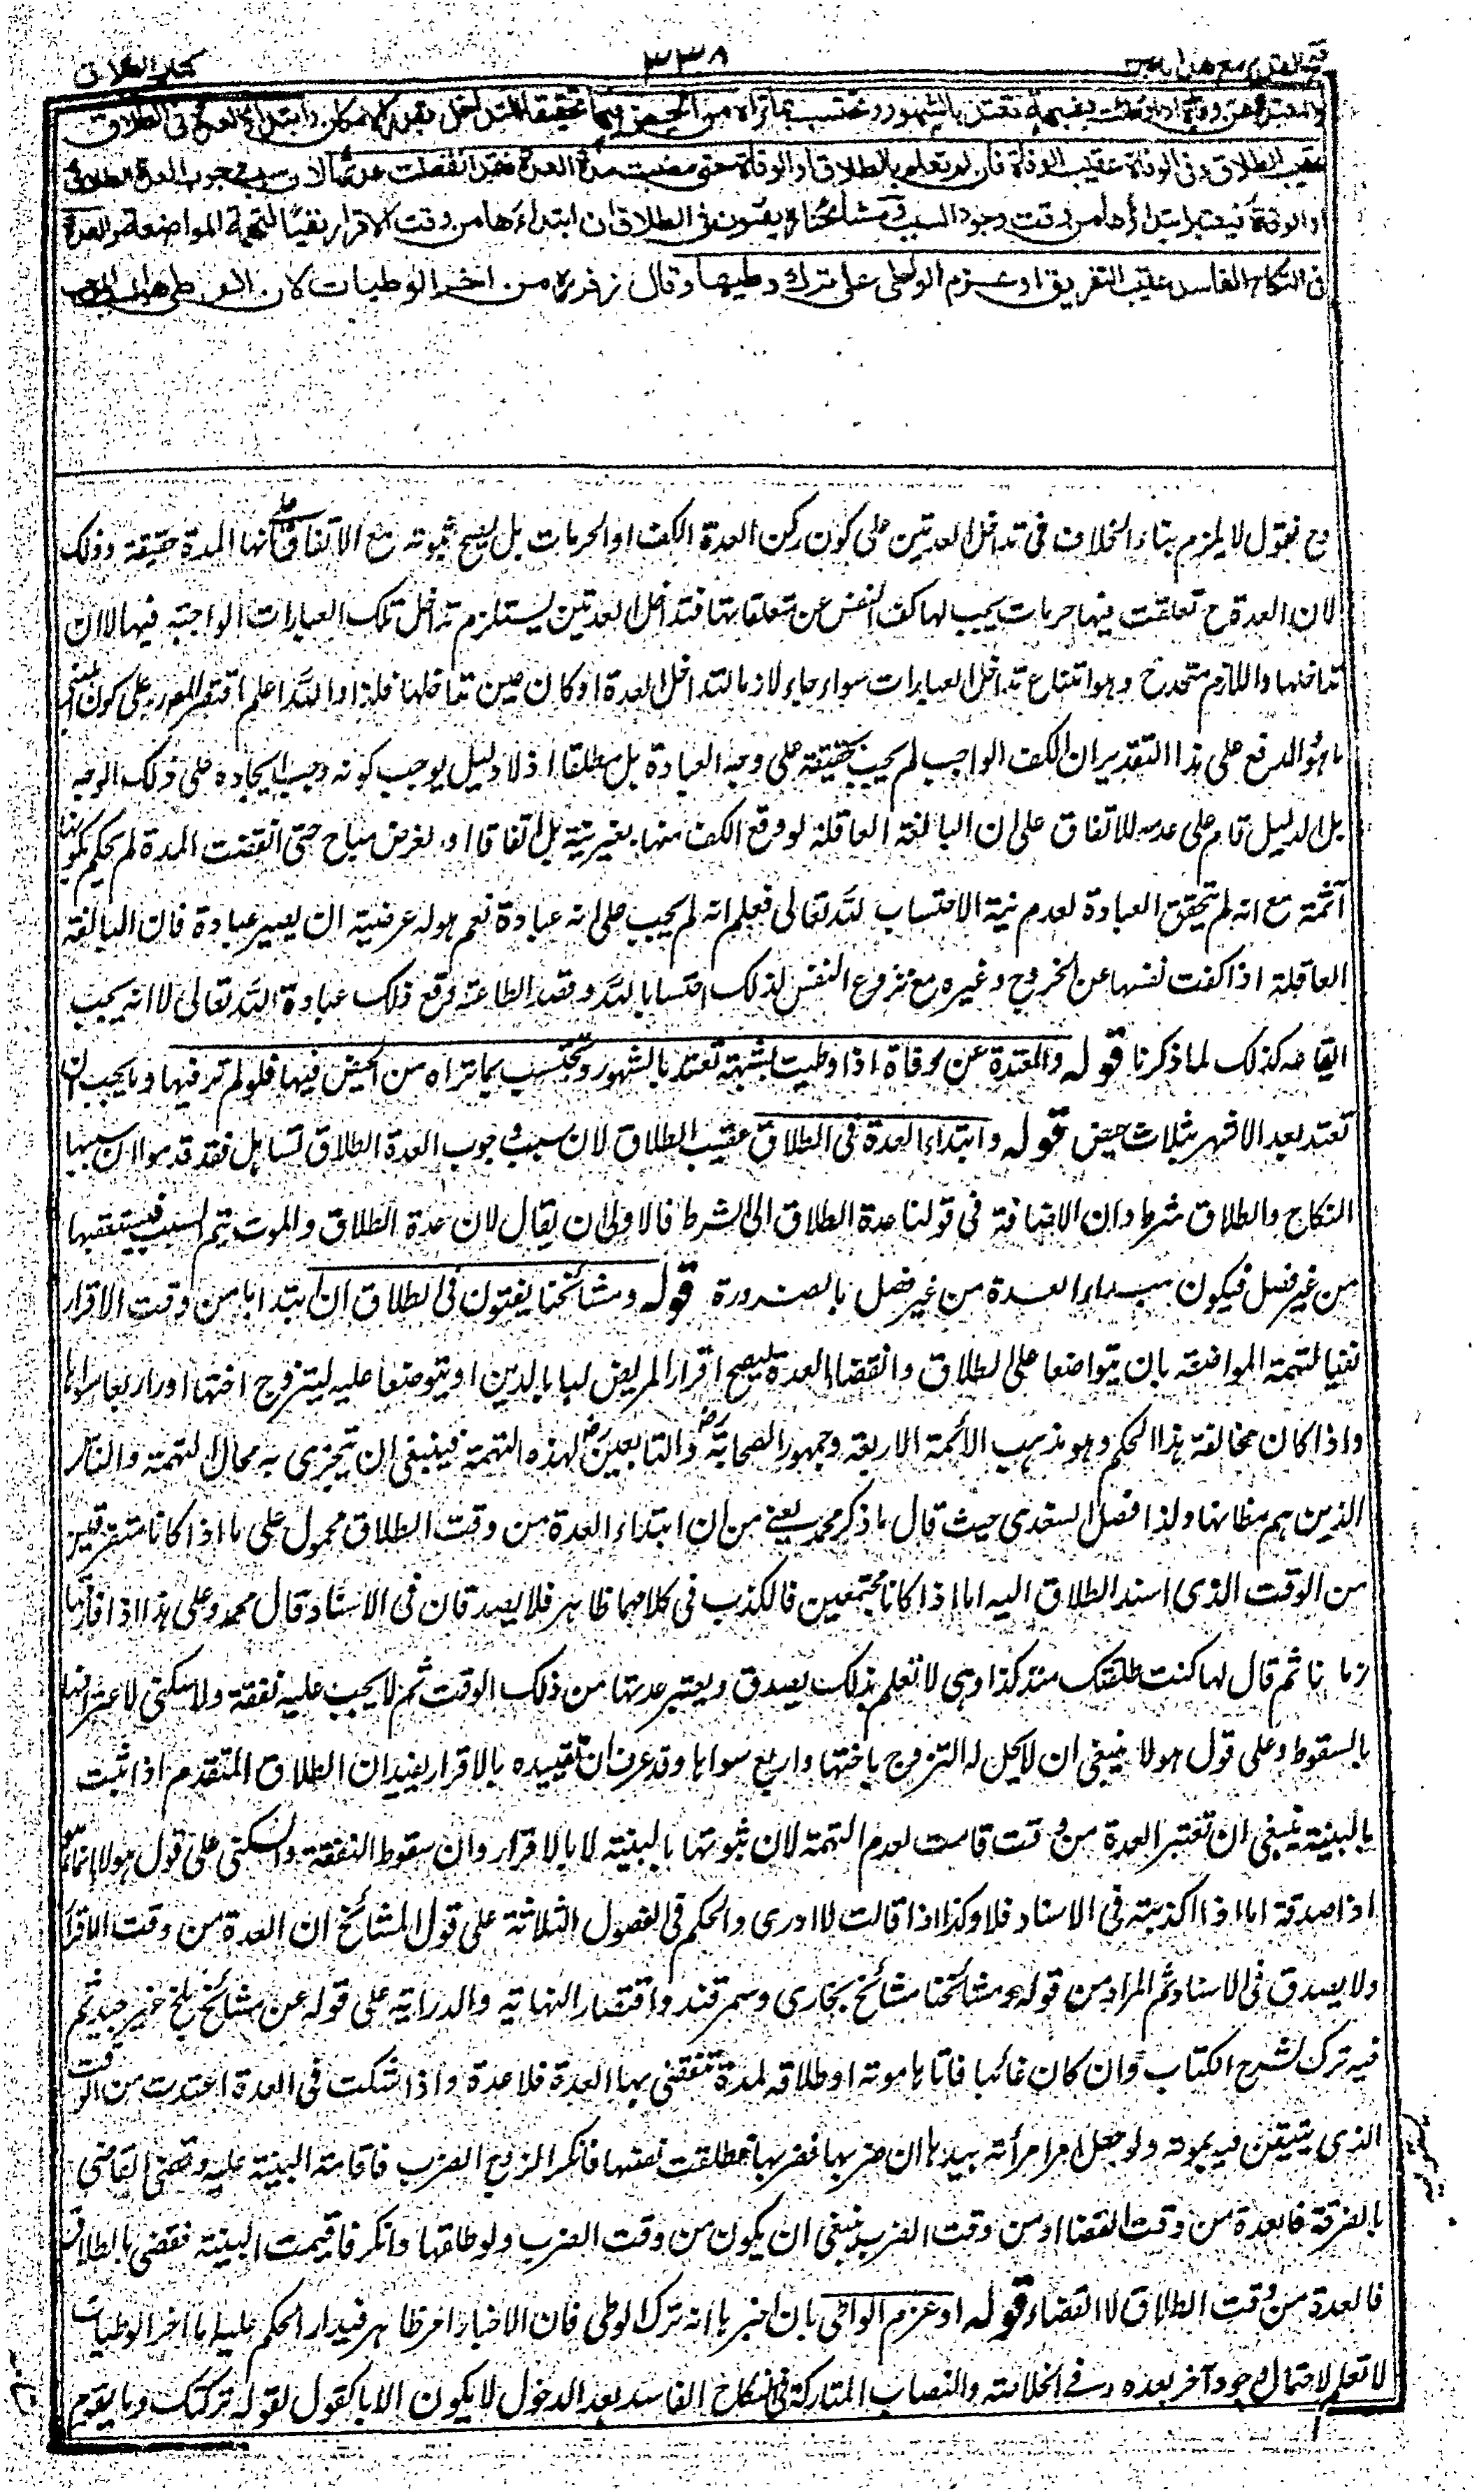 كتاب الطلاق ٣٣٨ فتح القدير مع هداية
والمعتدة عن وفاة اذا وطئت بشبهة تعتد بالشهور وتحتسب بما تراه من الحيض فيها تحقيقا للتداخل بقدر الامكان وابتداء العدة في الطلاق
عقيب الطلاق وفى الوفاة عقيب الوفاة فان لم تعلم بالطلاق او الوفاة حتى مضت مدة العدة فقد انقضت عدتها لان سبب وجوب العدة الطلاق
او الوفاة فيعتبر ابتداؤها من وقت وجود السبب ومشائخنا يفتون فى الطلاق ان ابتداءها من وقت الاقرار نفيا لتهمة المواضعة والعدة
فى النكاح الفاسد عقيب التفريق او عزم الواطى على ترك وطيها وقال زفر من اخر الوطيات لان الوطى هو السبب
وح نقول لا يلزم بناء الخلاف فى تداخل العدتين على كون ركن العدة الكف او الحرمات بل يصح ثبوته مع الاتفاق على انها المدة حقيقة وذلك
لان العدة ح تعلقت فيها حرمات يجب لها كف النفس عن متعلقاتها فتداخل العدتين يستلزم تداخل تلك العبادات الواجبة فيها لا ان
تداخلها واللازم متحد ح وهو امتناع تداخل العبادات سواء جاء لازما لتداخل العدة او كان عين تداخلها فلذا والله اعلم اقتصر المصرره على كون المبنى
ما هو الدفع على هذا التقدير ان الكف الواجب لم يجب حقيقة على وجه العبادة بل مطلقا اذ لا دليل يوجب كونه وجب ايجاده على ذلك الوجه
بل الدليل قام على عدمه للاتفاق على ان البالغة العاقلة لو وقع الكف منها بغير نية بل اتفاقا او لغرض مباح حتى انقضت المدة لم يحكم بكونها
آثمة مع انه لم تحقق العبادة لعدم نية الاحتساب لله تعالى فعلم انه لم يجب على انه عبادة نعم هو له عرضية ان يصير عبادة فان البالغة
العاقلة اذا كفت نفسها عن الخروج وغيره مع نزوع النفس لذلك احتسابا لله وقصد الطاعة وقع ذلك عبادة لله تعالى لا انه يجب
ايقاعه كذلك لما ذكرنا قوله والمعتدة عن وفاة اذا وطيت بشبهة تعتد بالشهور وتحتسب بما تراه من الحيض فيها فلو لم تر فيها دما يجب ان
تعتد بعد الاشهر بثلاث حيض قوله وابتداء العدة فى الطلاق عقيب الطلاق لان سبب وجوب العدة الطلاق تساهل فقد قدموا ان سببها
النكاح والطلاق شرط وان الاضافة فى قولنا عدة الطلاق الى الشرط فالاولى ان يقال لان عدة الطلاق والموت يتم السبب فيستعقبها
من غير فصل فيكون مبداء العدة من غير فصل بالضرورة قوله ومشائخنا يفتون فى الطلاق ان ابتداءها من وقت الاقرار
نفيا لتهمة المواضعة بان يتواضعا على الطلاق وانقضاء العدة ليصح اقرار المريض لها بالدين او يتوضعا عليه ليتزوج اختها او اربعا سواها
واذا كان مخالفة هذا الحكم وهو مذهب الائمة الاربعة وجمهور الصحابة رض والتابعين رض لهذه التهمة فينبغى ان يتحرى به محال التهمة والناس
الذين هم مظانها ولذا فصل السغدى حيث قال ما ذكر محمد يعنى من ان ابتداء العدة من وقت الطلاق محمول على ما اذا كانا متفرقين
من الوقت الذى اسند الطلاق اليه اما اذا كانا مجتمعين فالكذب فى كلامهما ظاهر فلا يصدقان فى الاسناد قال محمد وعلى هذا اذا فارقها
زمانا ثم قال لها كنت طلقتك منذ كذا وهى لا تعلم بذلك يصدق ويعتبر عدتها من ذلك الوقت ثم لا يجب عليه نفقة ولا سكنى لاعترافها
بالسقوط وعلى قول هولاء ينبغى ان لا يحل له التزوج باختها واربع سواها وقد عرف ان تقييده بالاقرار يفيد ان الطلاق المتقدم اذا ثبت
بالبينة ينبغى ان تعتبر العدة من وقت قامت لعدم التهمة لان ثبوتها بالبينة لا بالاقرار وان سقوط النفقة والسكنى على قول هولاء انما هو
اذا صدقته اما اذا كذبته فى الاسناد فلا وكذا اذا قالت لا ادرى والحكم فى الفصول الثلاثة على قول المشائخ ان العدة من وقت الاقرار
ولا يصدق فى الاسناد ثم المراد من قوله ومشائخنا مشائخ بخارى وسمرقند واقتصار النهاية والدراية على قوله عن مشائخ بلخ غير جيد ثم
فيه ترك لشرح الكتاب وان كان غائبا فاتاها موته او طلاقه لمدة تنقضى بها العدة فلا عدة واذا شكت فى العدة اعتدت من الوقت
الذى يتيقن فيه بموته ولو جعل امر امرأته بيدها ان ضربها فضربها فطلقت نفسها فانكر الزوج الضرب فاقامت البينة عليه وقضى القاضى
بالفرقة فالعدة من وقت القضا او من وقت الضرب ينبغى ان يكون من وقت الضرب ولو طلقها وانكر فاقيمت البينة فقضى بالطلاق
فالعدة من وقت الطلاق لا القضاء قوله او عزم الواطى بان اخبرها انه ترك الوطى فان الاخبار امر ظاهر فيدار الحكم عليه اما اخر الوطيات
لا تعلم لاحتمال وجود آخر بعده وفى الخلاصة والنصاب المتاركة فى النكاح الفاسد بعد الدخول لا يكون الا بالقول كقوله تركتك وما يقوم